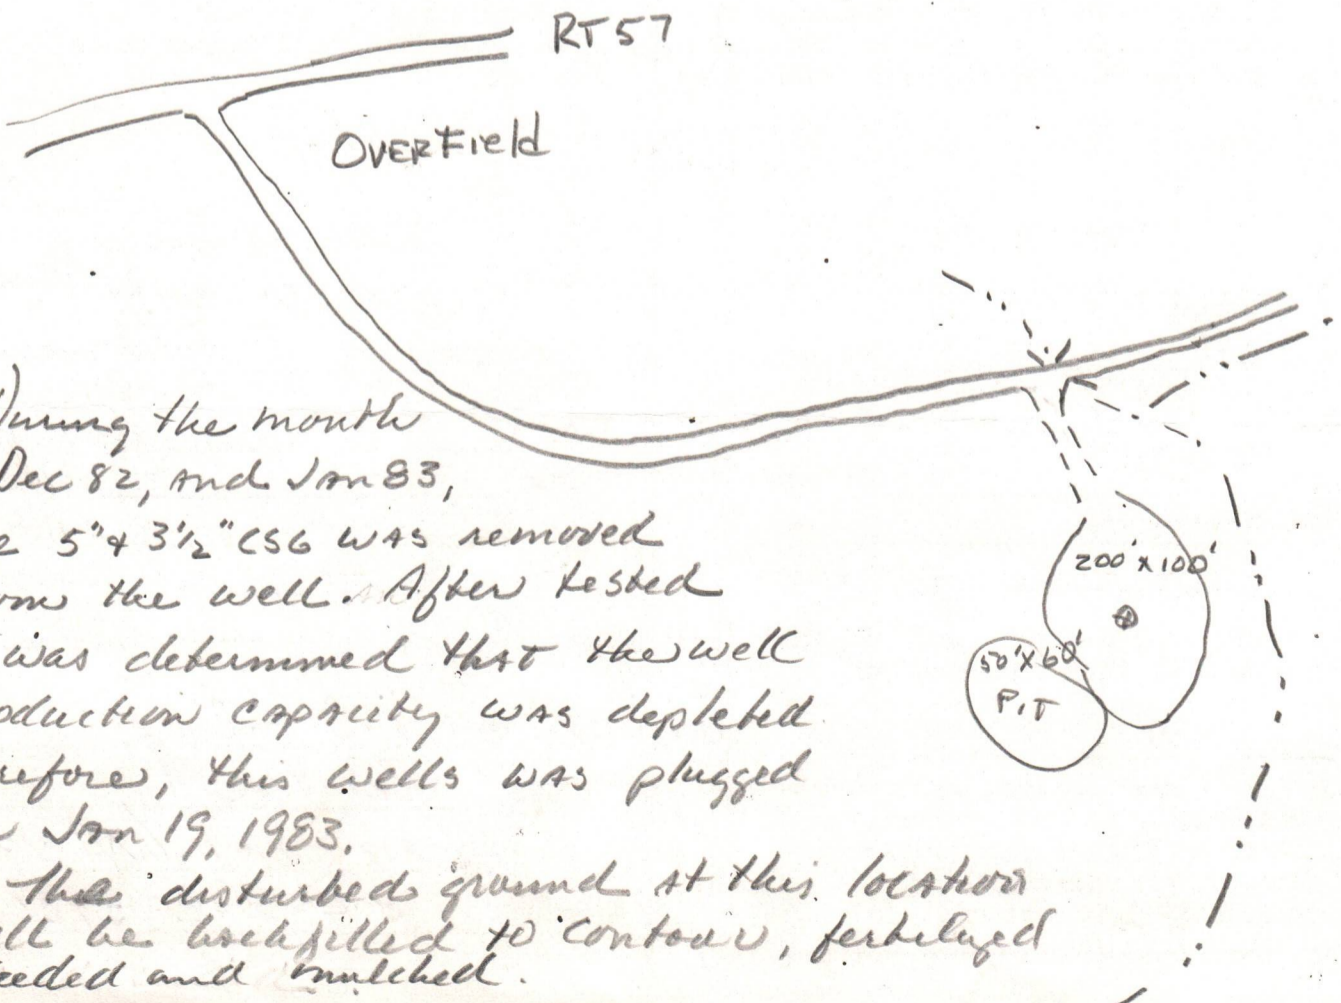 RT 57
OVERField
During the month
Dec 82, and Jan 83,
5" & 3 1/2" CSG WAS removed
the well. After tested
was determined that the well
oduction capacity was depleted
refore, this wells was plugged
Jan 19, 1983.
The disturbed ground at this location
be backfilled to contour, fertilized
eeded and mulched.
200' x 100'
50' x 60'
PIT